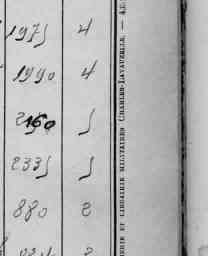 1975 4
1990 4
2160 5
2335 5
880 2
ET LIBRAIRIE MILITAIRES CHARLES-LAVAUZELLE. —